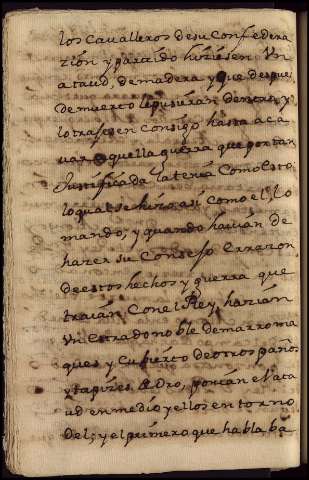 los Cavalleros desu Confedera
zión y partido hiziesen Vn
ataud, demadera y que despues
demuerto lepusieran dentro, y
lo trajesen consigo hasta aca
var aquella guerra que portan
Justificada latenia Como esto,
loqual se hizo asi como el, lo
mando; y quando havian de
hazer su Consejo
deestos hechos y guerra que
traían Con el Rey, hazian
Vn estrado noble demarroma
ques, y Cubierto deotros paños
y tapizes de Oro, ponían el ata
ud enmedio yellos en torno
Del; y el primero que hablaba